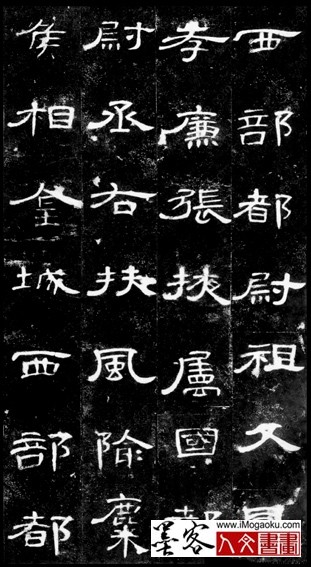 西部都尉祖父
孝廉張掖屬國都
尉丞右扶風隃麋
侯相金城西部都
墨客
www.iMogaoku.com
人文書畫